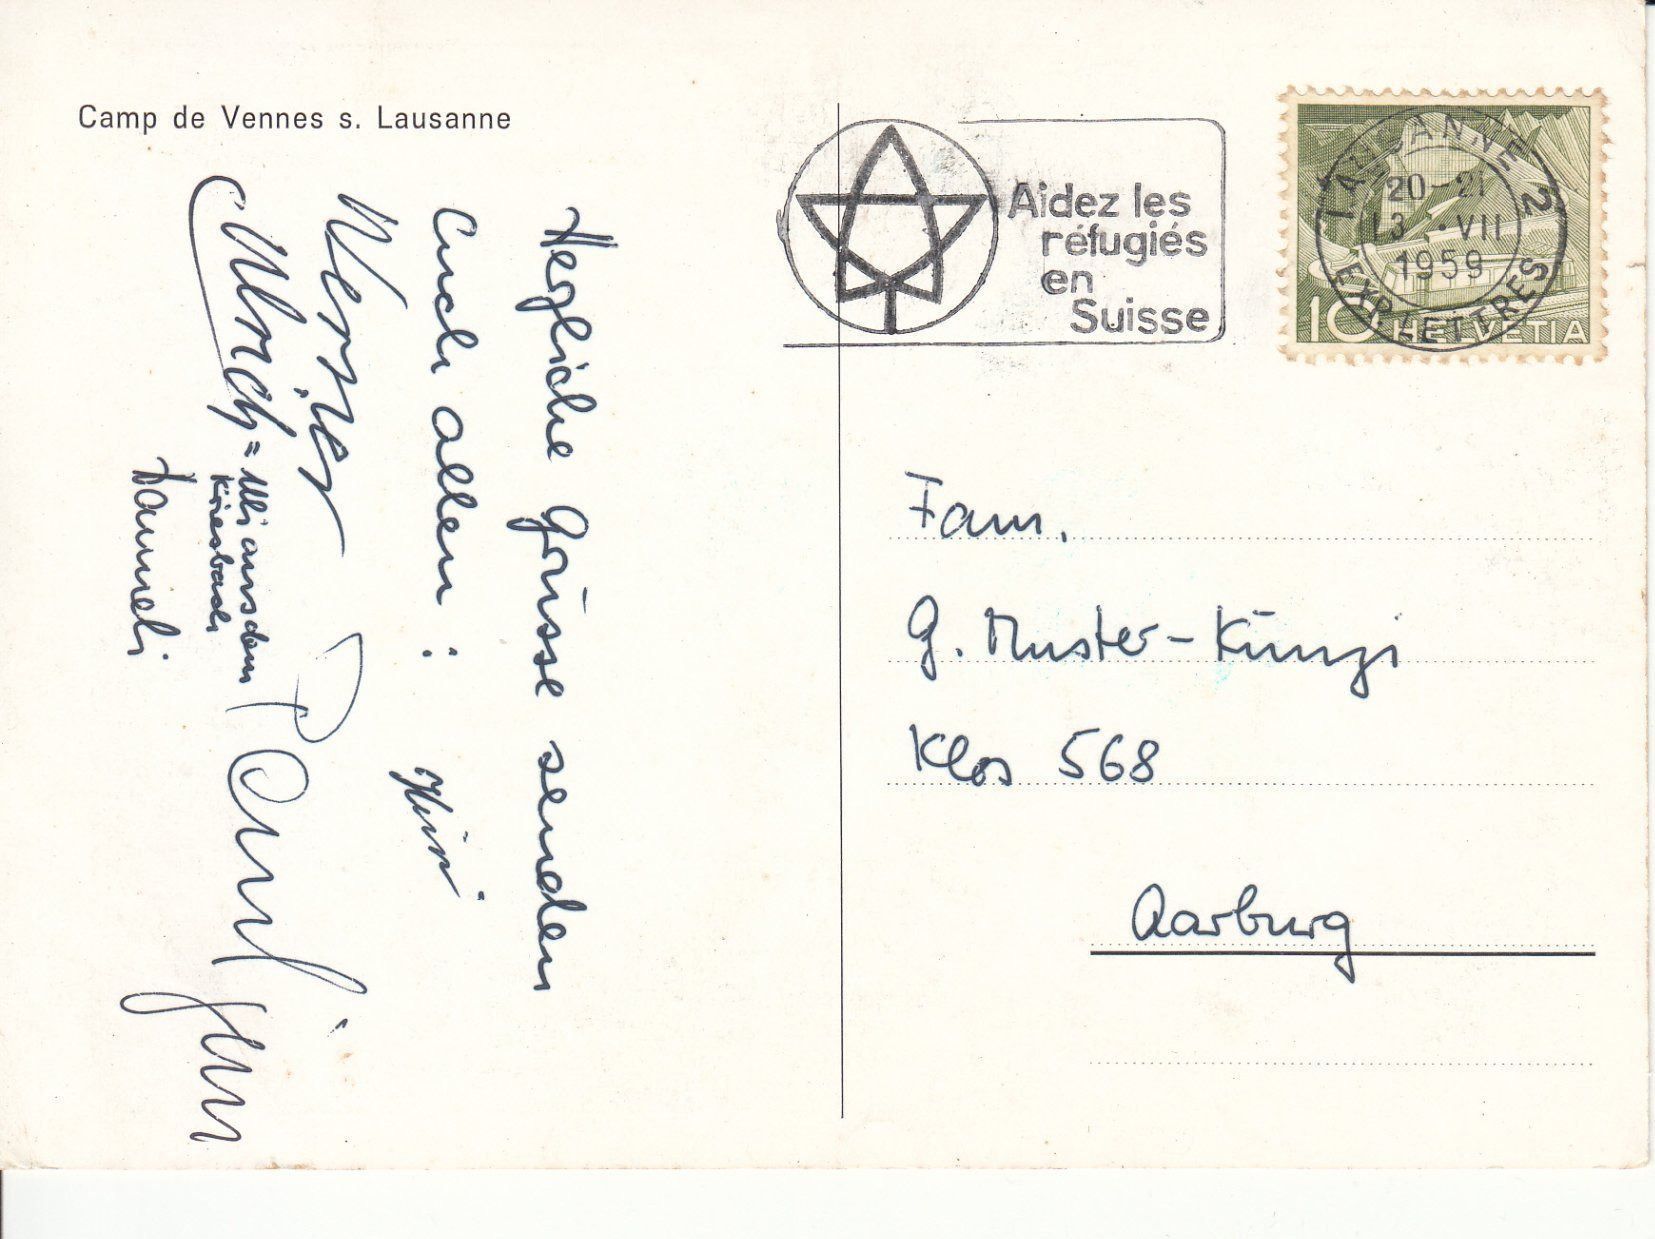 Camp de Vennes s. Lausanne
Herzliche Grüsse senden
Euch allen :
Heiri
Werner
Ulrich = Ulli aus dem
Kriesbach
Hanneli
Paul
Aidez les
réfugiés
en
Suisse
LAUSANNE 2
20-21
13.VII
1959
EXP. LETTRES
10 HELVETIA
Fam.
G. Muster-Künzi
Klos 568
Aarburg